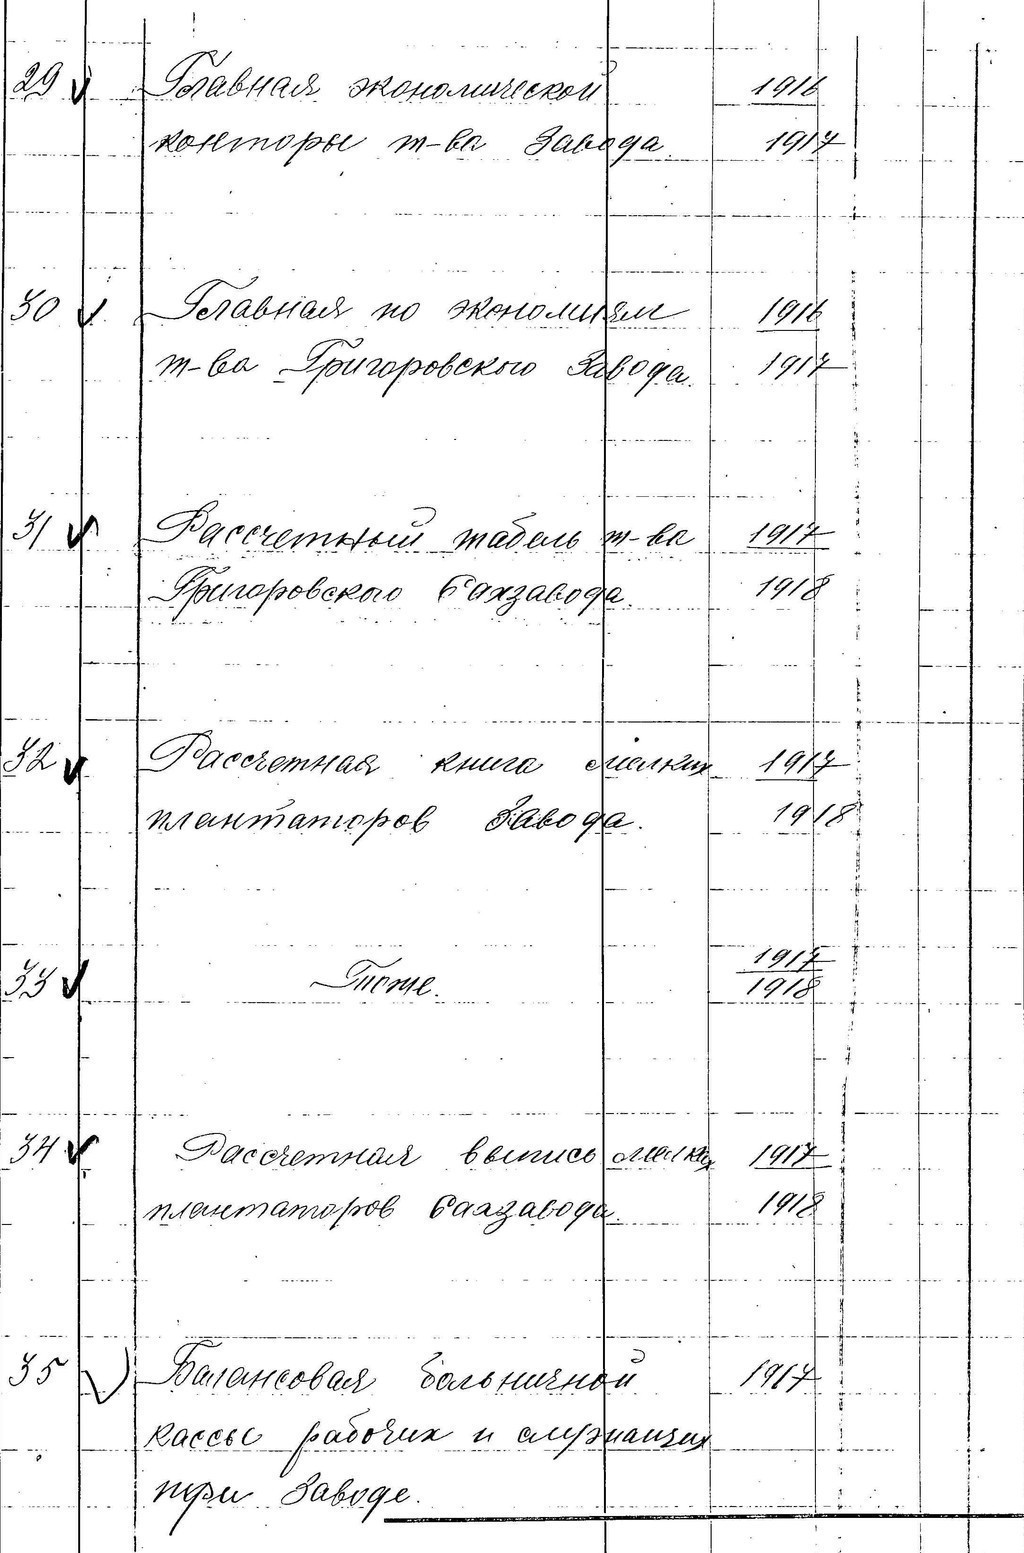 29 Главная экономической 1916
конторы т-ва Завода 1917
30 Главная по экономиям 1916
т-ва Григоровского Завода. 1917
31 Рассчетный табель т-ва 1917
Григоровского Сахзавода 1918
32 Рассчетная книга мелких 1917
плантаторов Завода. 1918
33 Тоже. 1917
1918
34 Рассчетная выпись мелких 1917
плантаторов Сахзавода. 1918
35 Балансовая больничной 1917
кассы рабочих и служащих
при Заводе.